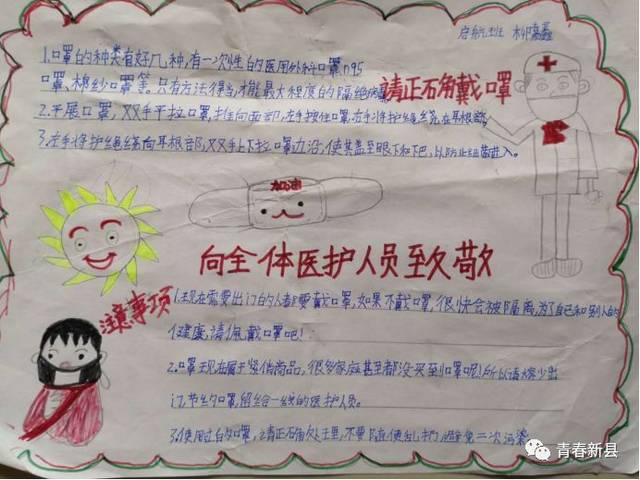 启航班
1.口罩的种类有好几种,有一次性的医用外科口罩、n95
口罩、棉纱口罩等,只有方法得当,才能最大程度的隔绝病毒
请正确戴口罩
2.开展口罩,双手平拉口罩,推向面部,左手按住口罩,右手将护绳绕在耳根部
3.左手将护绳绕向耳根部,双手上下拉口罩边沿,使其盖至眼下和下巴,以防止细菌进入。
加油
向全体医护人员致敬
注意事项
1.现在需要出门的人都要戴口罩,如果不戴口罩,很快会被隔离,为了自己和别人的
健康,请佩戴口罩吧!
2.口罩现在属于紧俏商品,很多家庭甚至都没买到口罩呢!所以请减少出
门,节约口罩,留给一线的医护人员。
3.使用过的口罩,请正确处理,不要随便乱扔,避免二次污染
青春新县